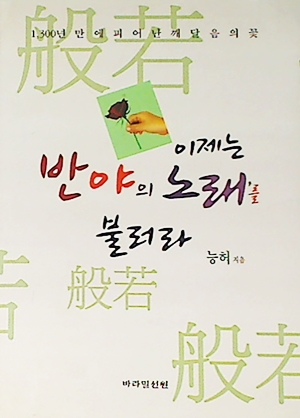 般若
1,300년 만에 피어난 깨달음의 꽃
이제는
반야의 노래를
불러라
능허 지음
般若
般若
바라밀선원